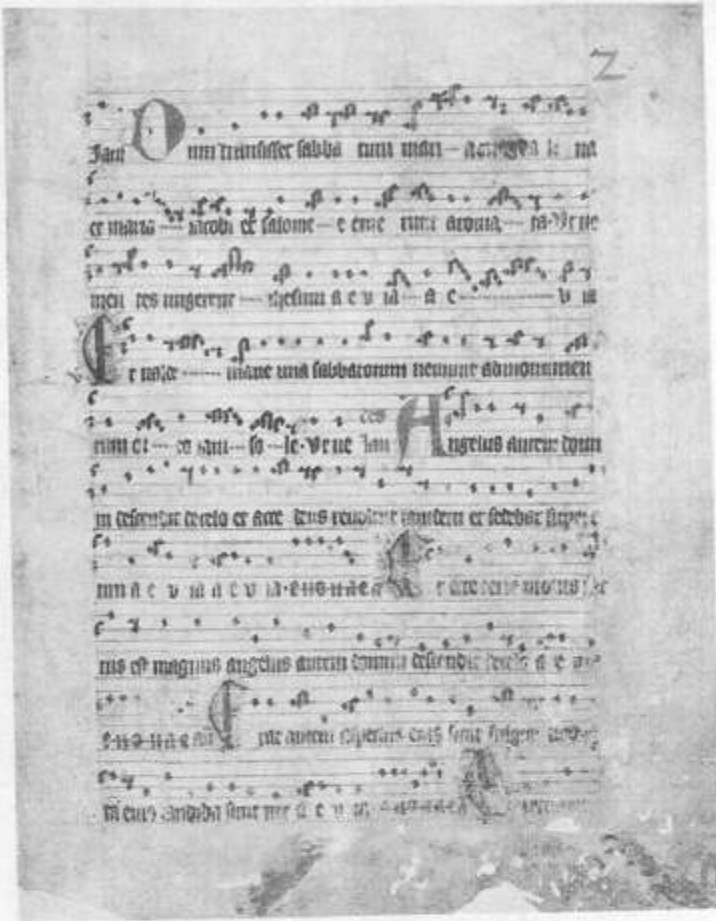 2
um transisset sabba tum mari
et maria iacobi et salome e eme runt aroma ta Vt ue
men tes ungerent ihesum a e v ia a e v ia
Et ualde mane una sabbatorum ueniunt ad monumen
tum or to iam so le Vt ue Angelus autem domi
ni descendit de celo et acce dens reuoluit lapidem et sedebat super e
um a e v ia a e v ia e u o u a e Et ecce terre motus fac
tus est magnus angelus autem domini descendit de celo a e v
e u o u a e autem aspectus eius sicut fulgur
ta eius candida sicut nix a e v ia